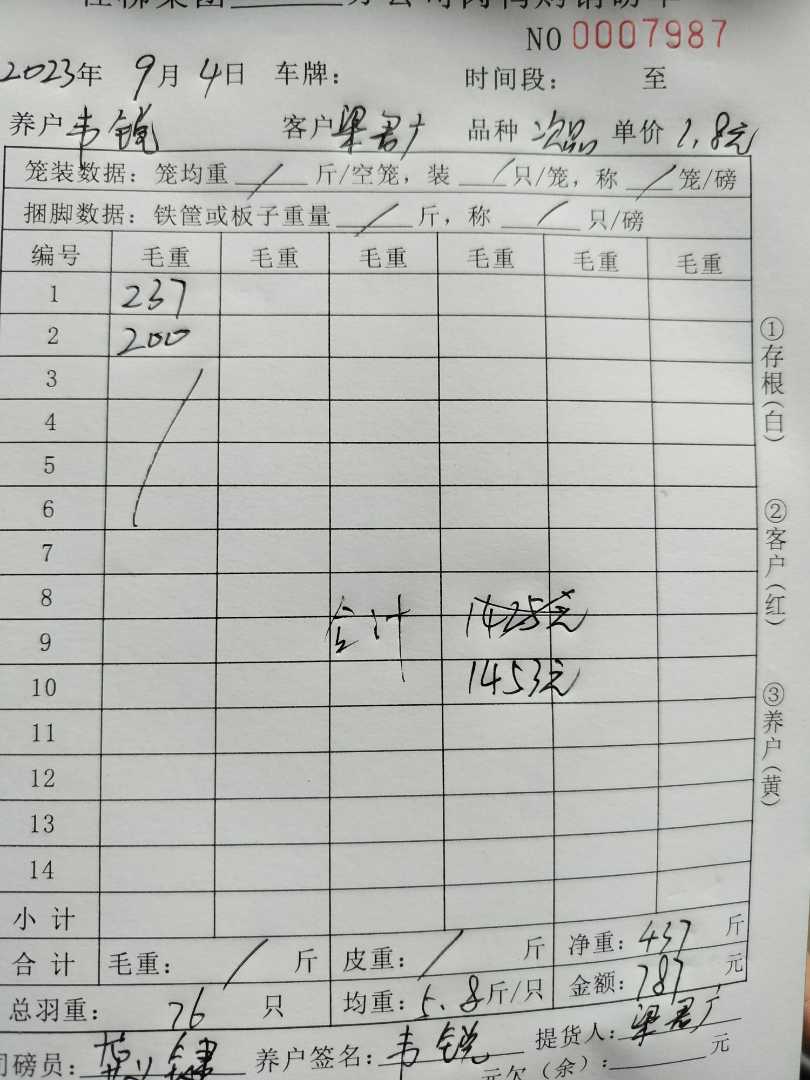 NO 0007987
2023年 9月 4日 车牌: 时间段: 至
养户 韦锐 客户 梁君广 品种 次品 单价 1.8元
笼装数据: 笼均重 / 斤/空笼, 装 / 只/笼, 称 / 笼/磅
捆脚数据: 铁筐或板子重量 / 斤, 称 / 只/磅
编号 毛重 毛重 毛重 毛重 毛重 毛重
1 237
2 200
3
4
5
6
7
8
合计 1425元
9
1453元
10
11
12
13
14
小计
合计 毛重: / 斤 皮重: / 斤 净重: 437 斤
总羽重: 76 只 均重: 5.8斤/只 金额: 787 元
司磅员: 养户签名: 韦锐 提货人: 梁君广
元欠(余): 元
①存根(白)
②客户(红)
③养户(黄)